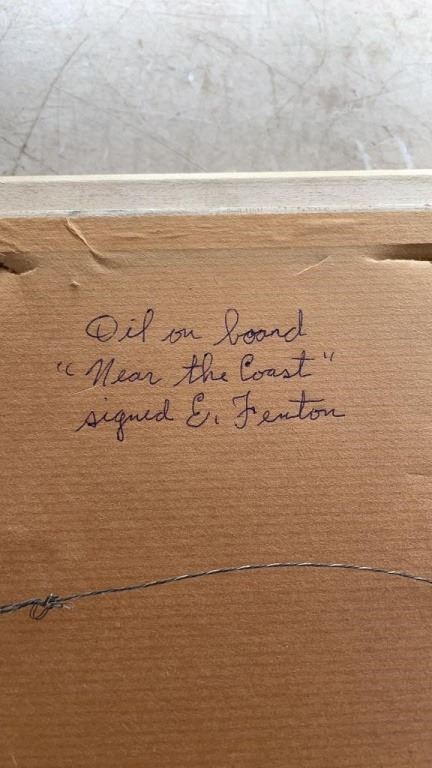 Oil on board
"Near the Coast"
signed E. Fenton